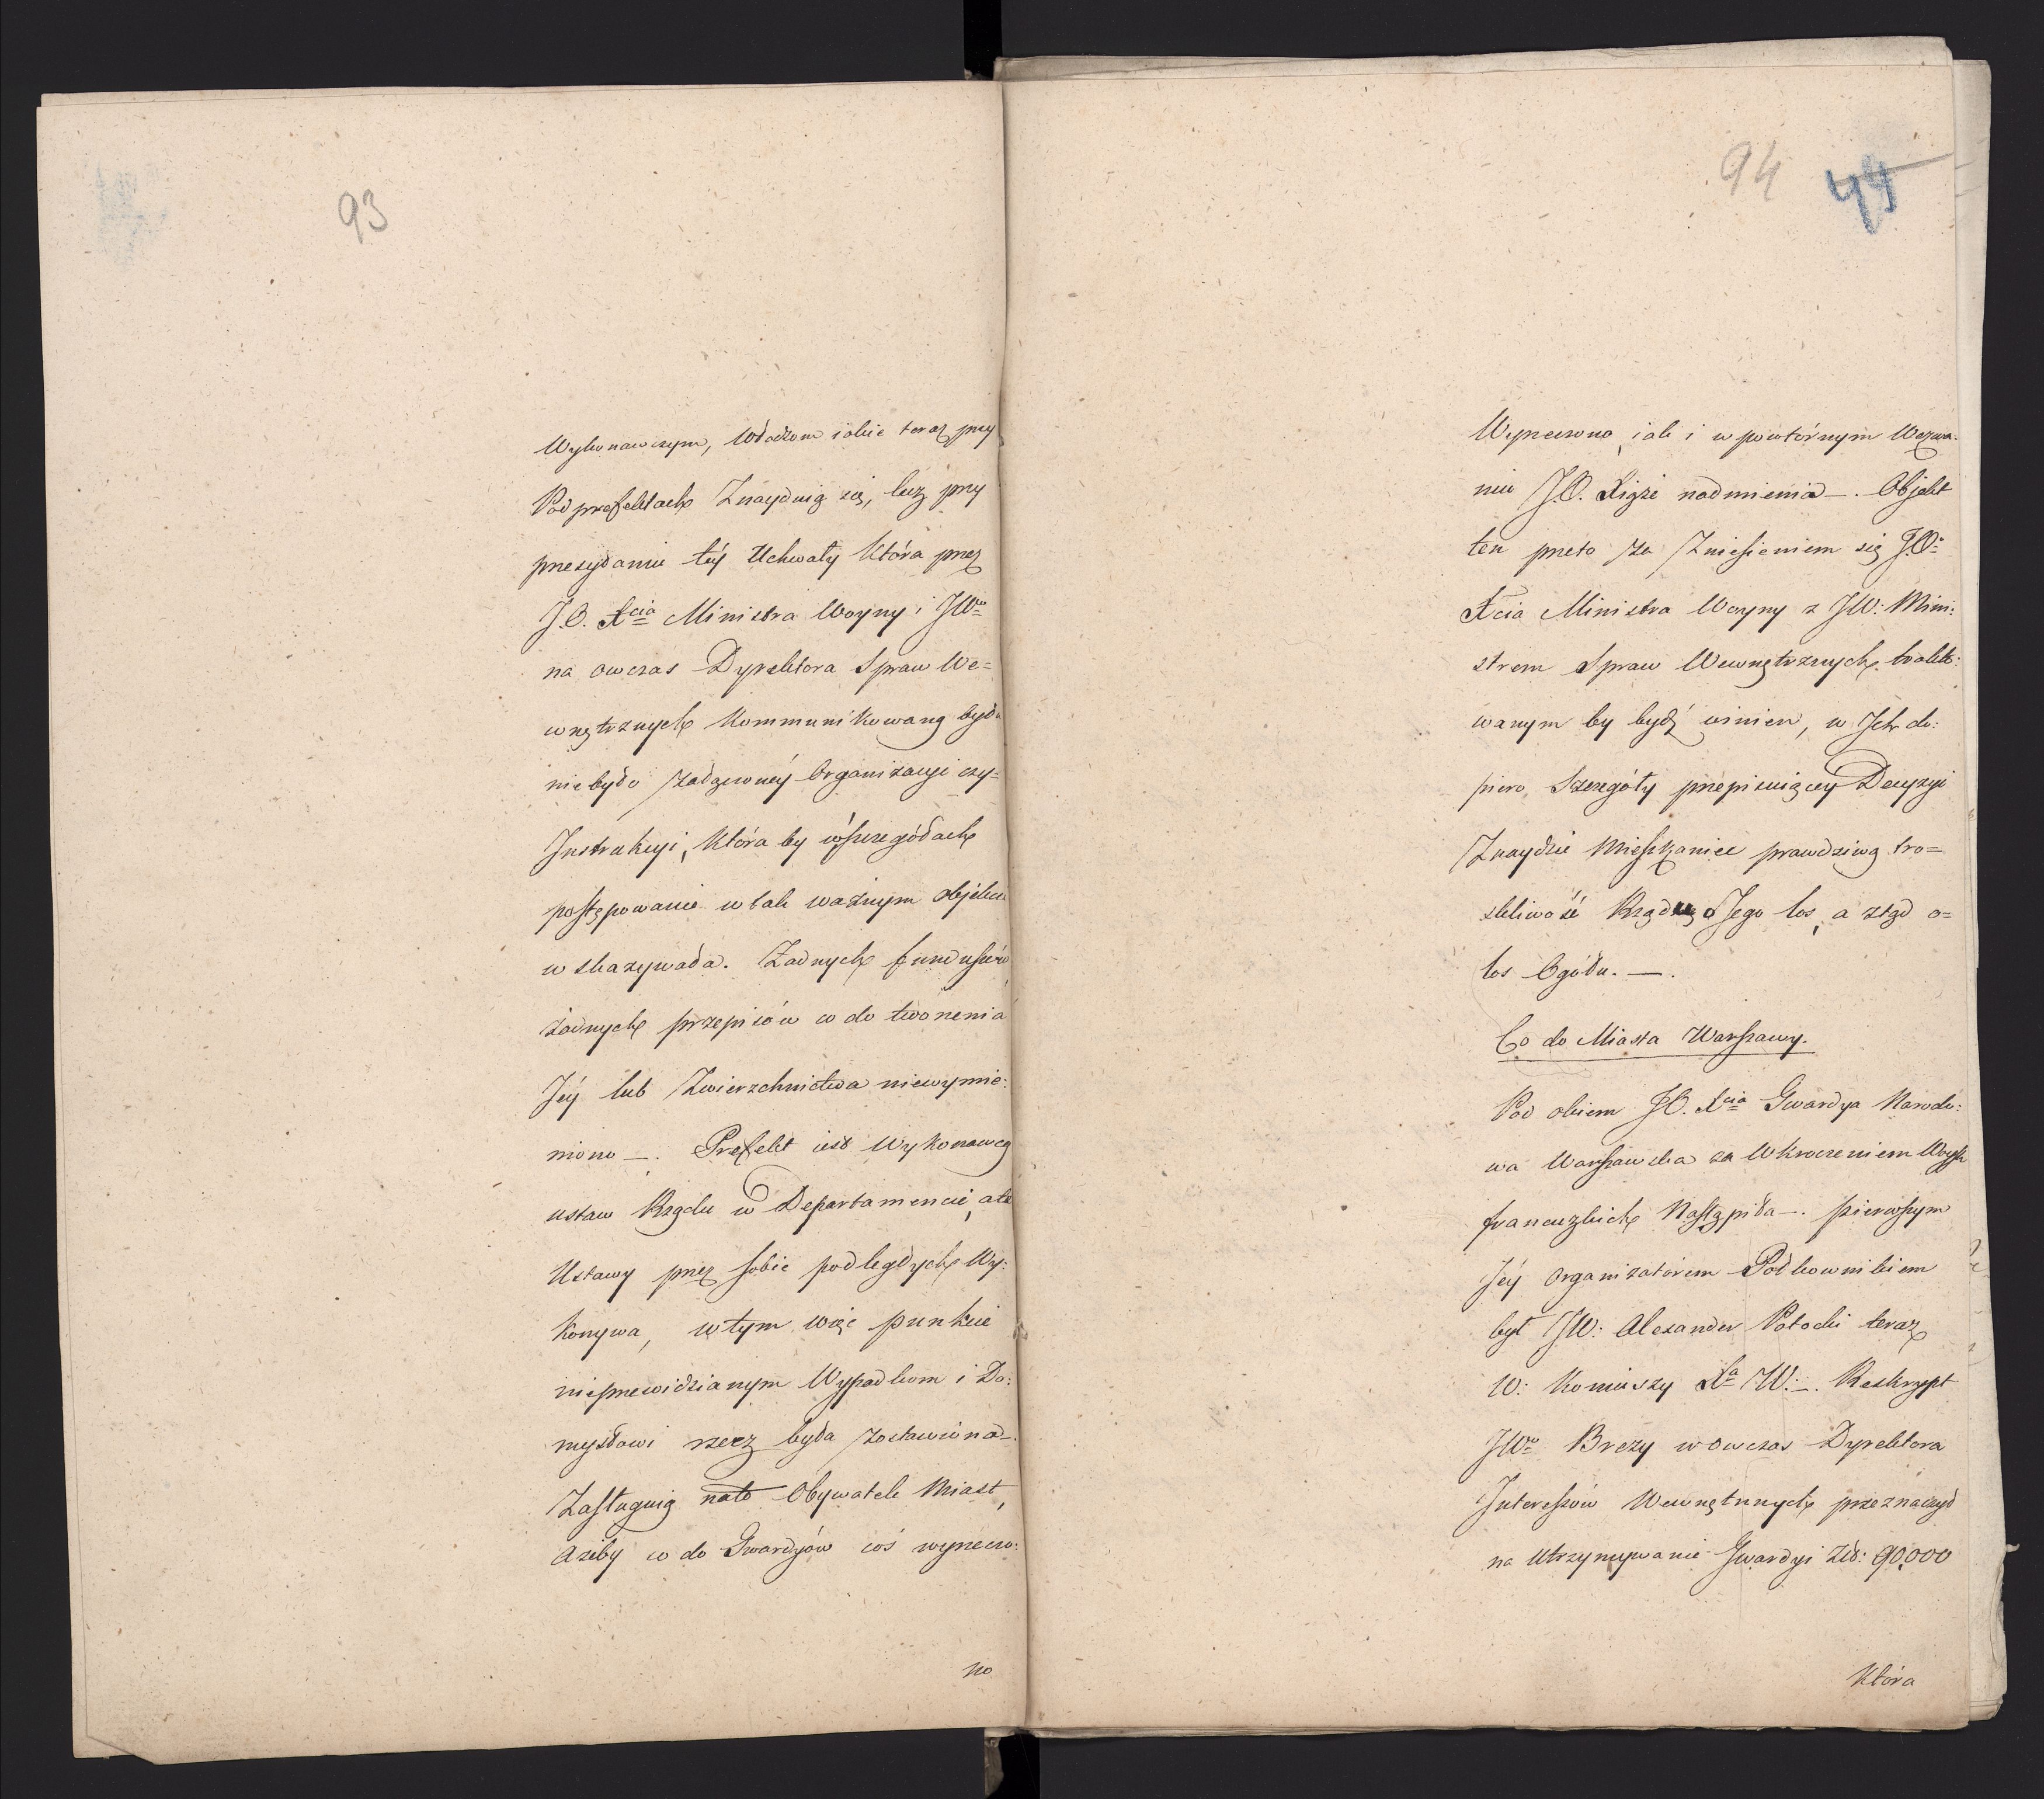 93
Wykonawczym, Władzom iakie teraz przy
Podprefektach Znayduią się, lecz przy
przesyłaniu téy Uchwały która przez
J.O. Xcia Ministra Woyny i JWo
na owczas Dyrektora Spraw We=
wnętrznych Kommunikowaną była
nie było załączonéy Organizacyi czy=
Instrukcyi, która by w szczegółach
postępowanie w tak ważnym objekcie
wskazywała. Żadnych funduszów,
żadnych przepisów co do tworzenia
Jéy lub Zwierzchnictwa niewymie:
niono —. Prefekt iest Wykonawcą
ustaw Rządu w Departamencie, ale
Ustawy przez sobie podległych Wy:
konywa, w tym więc punkcie
nieprzewidzianym Wypadkom i Do:
mysłowi rzecz była zostawiona —.
Zasługuią nato Obywatele Miast,
Ażeby co do Gwardyów coś wyrzeczo:
no
94 49
Wyrzeczono, iak i w powtórnym Wezwa:
niu J.O. Xiąże nadmienia —. Objekt
ten przeto za Zniesieniem się J.O:
Xcia Ministra Woyny z JW: Mini:
strem Spraw Wewnętrznych trakto:
wanym by bydź winien, w Ich do:
piero Szczegóły przepisuiącey Decyzyi
Znaydzie Mieszkaniec prawdziwą tro=
skliwość Rządu o Jego los, a ztąd o=
los Ogółu. —.
Co do Miasta Warszawy.
Pod okiem J.O. Xcia Gwardya Narodo:
wa Warszawska za Wkroczeniem Woysk
francuzkich Nastąpiła —. pierwszym
Jéy Organizatorem Półkownikiem
był JW: Alexander Potocki teraz
W: Koniuszy Xa W: —. Reskrypt
JWo Brezy wowczas Dyrektora
Interessów Wewnętrznych przeznaczył
na Utrzymywanie Gwardyi Złł: 90,000
Która